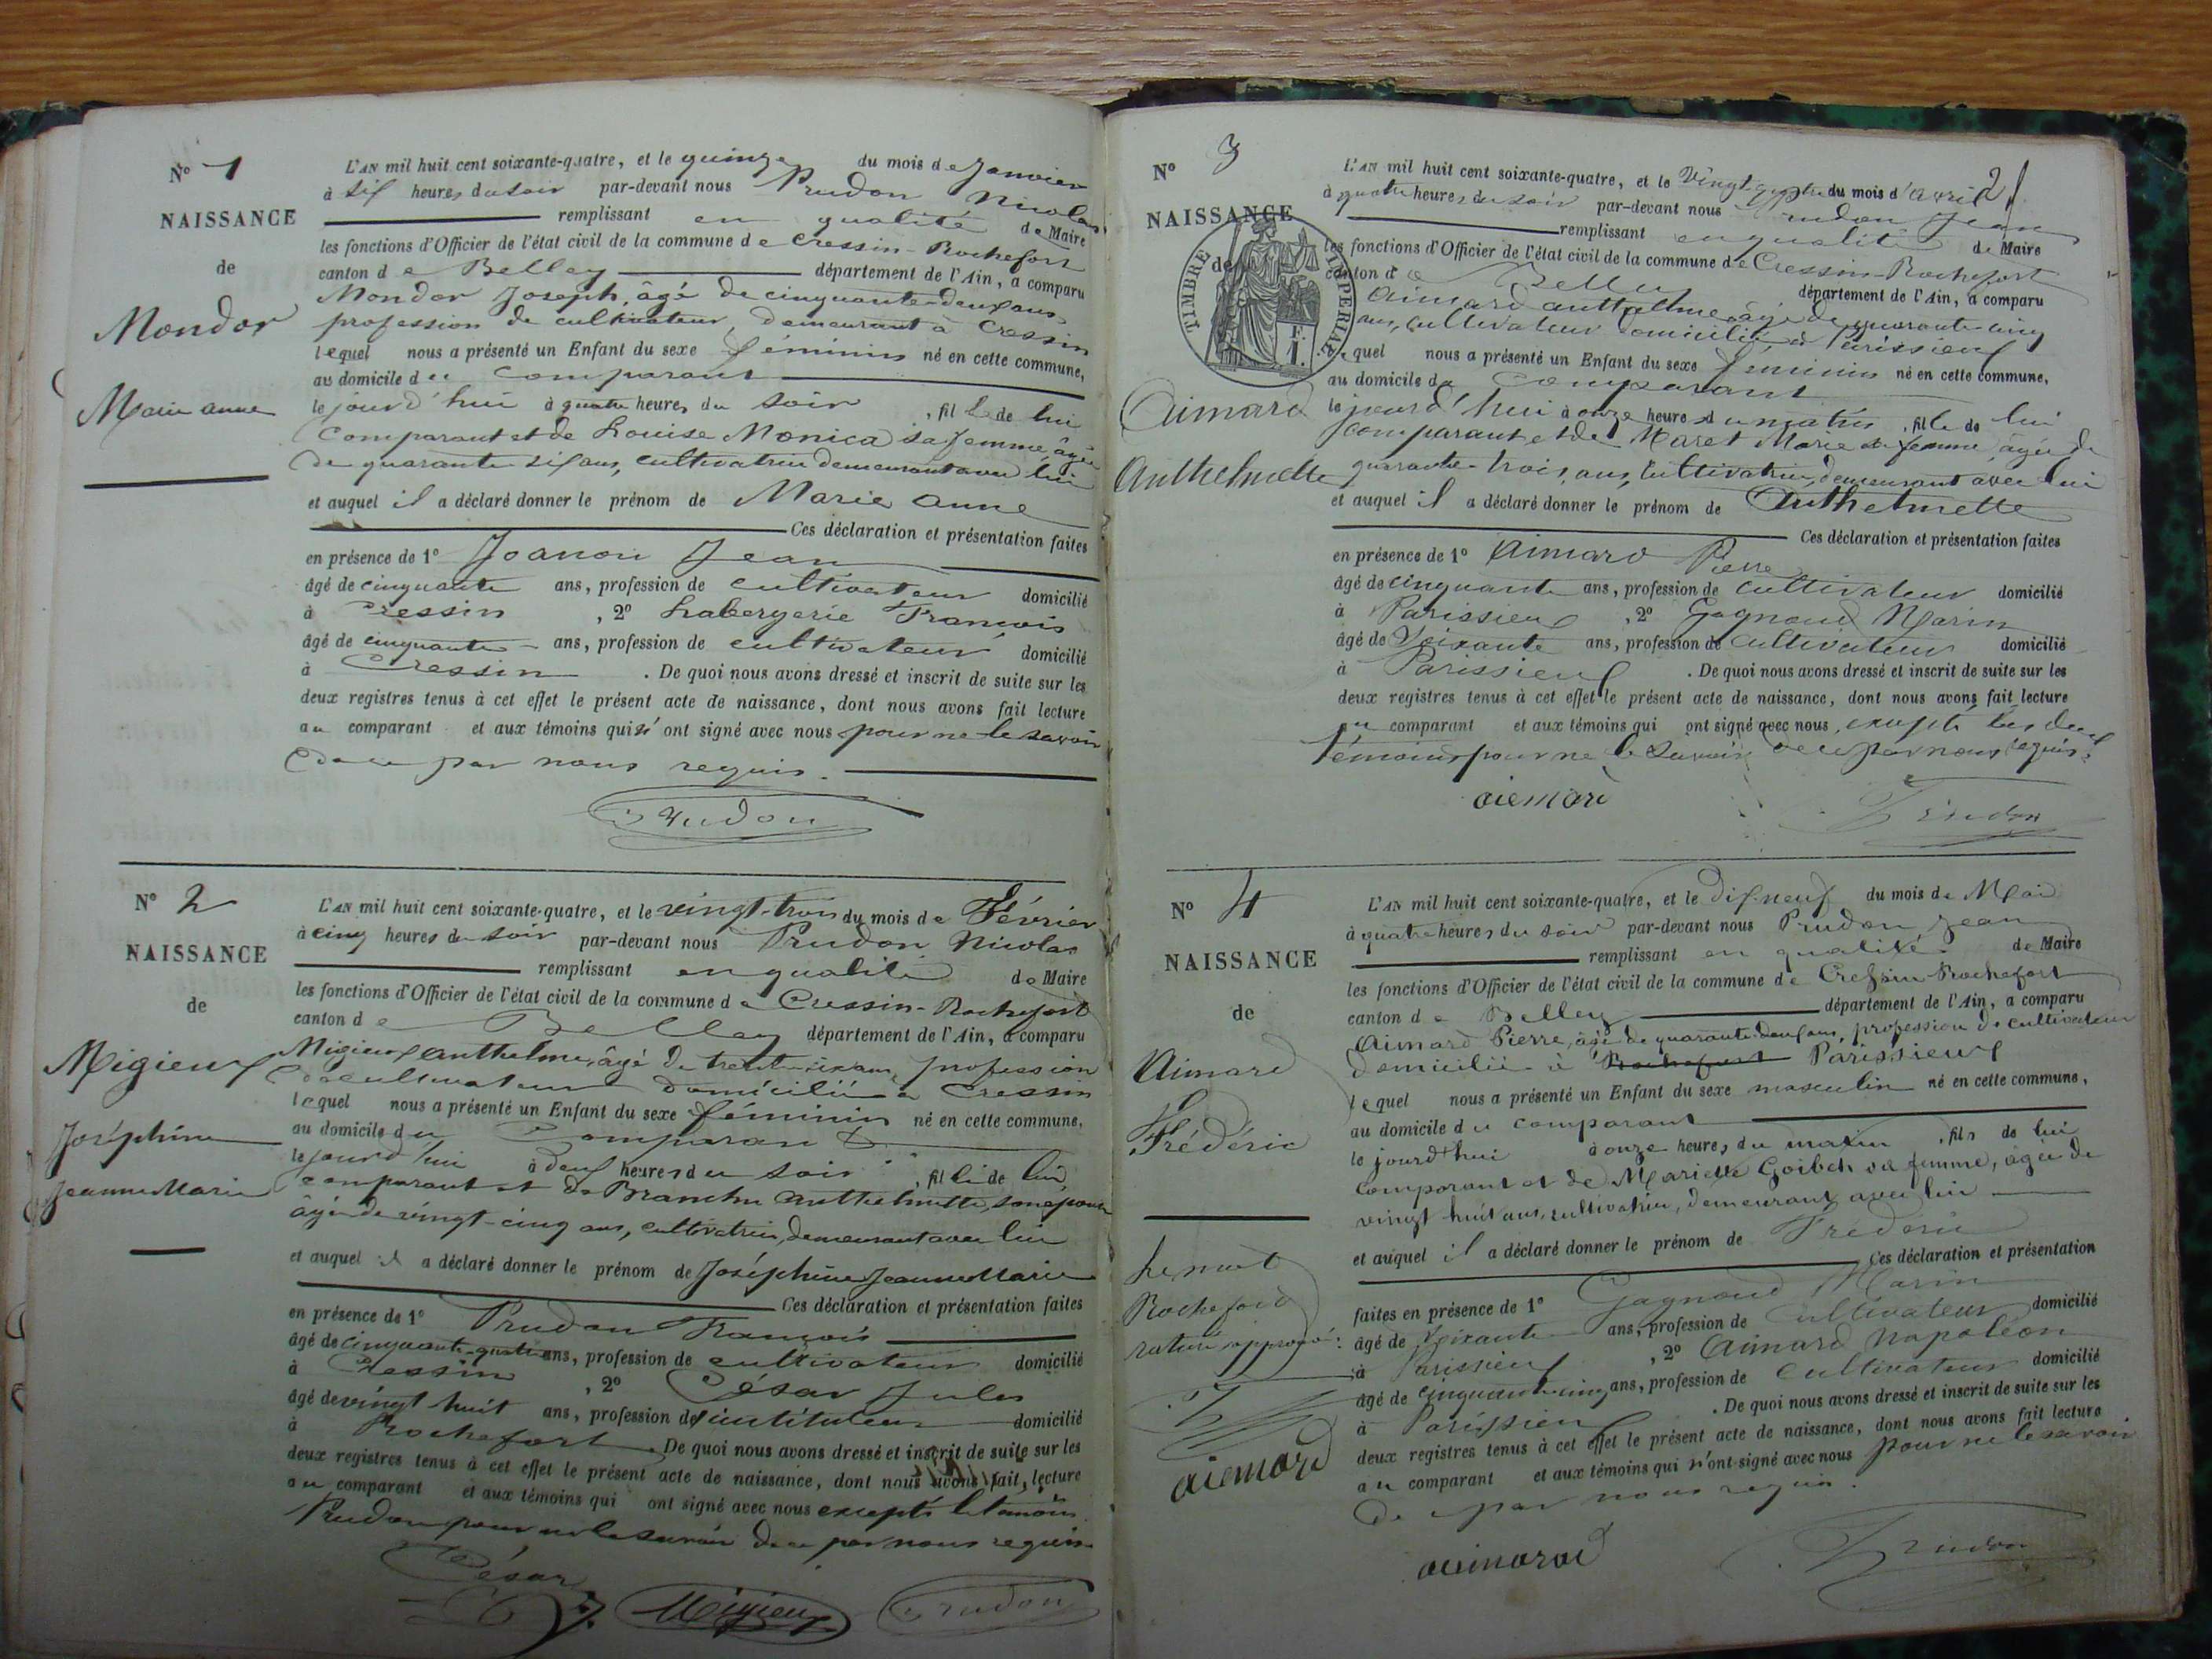 N° 1
NAISSANCE
de
Mondor
Marie anne
L'AN mil huit cent soixante-quatre, et le quinze du mois de Janvier
à six heures du soir par-devant nous Prudon Nicolas
remplissant en qualité de Maire
les fonctions d'Officier de l'état civil de la commune de Cressin-Rochefort
canton de Belley département de l'Ain, a comparu
Mondor Joseph, âgé de cinquante-deux ans,
profession de cultivateur, demeurant à Cressin
lequel nous a présenté un Enfant du sexe féminin né en cette commune,
au domicile du comparant
le jourd'hui à quatre heures du soir, fille de lui
comparant et de Louise Monica sa femme, âgée
de quarante six ans, cultivatrice demeurant avec lui
et auquel il a déclaré donner le prénom de Marie anne
Ces déclaration et présentation faites
en présence de 1° Joanon Jean
âgé de cinquante ans, profession de cultivateur domicilié
à Cressin, 2° Labergerie François
âgé de cinquante ans, profession de cultivateur domicilié
à Cressin. De quoi nous avons dressé et inscrit de suite sur les
deux registres tenus à cet effet le présent acte de naissance, dont nous avons fait lecture
au comparant et aux témoins qui n'ont signé avec nous pour ne le savoir
de ce par nous requis.
Prudon
N° 2
NAISSANCE
de
Migieux
Joséphine
Jeanne Marie
L'AN mil huit cent soixante-quatre, et le vingt-trois du mois de Février
à cinq heures du soir par-devant nous Prudon Nicolas
remplissant en qualité de Maire
les fonctions d'Officier de l'état civil de la commune de Cressin-Rochefort
canton de Belley département de l'Ain, a comparu
Migieux Anthelme, âgé de trente ans, profession
de cultivateur domicilié à Cressin
lequel nous a présenté un Enfant du sexe féminin né en cette commune,
au domicile du Comparant
le jourd'hui à deux heures du soir, fille de lui
comparant et de Branche Anthelmette, son épouse
âgée de vingt-cinq ans, cultivatrice, demeurant avec lui
et auquel il a déclaré donner le prénom de Joséphine Jeanne Marie
Ces déclaration et présentation faites
en présence de 1° Prudon François
âgé de cinquante-quatre ans, profession de cultivateur domicilié
à Cressin, 2° César Jules
âgé de vingt huit ans, profession d'instituteur domicilié
à Rochefort. De quoi nous avons dressé et inscrit de suite sur les
deux registres tenus à cet effet le présent acte de naissance, dont nous avons fait lecture
au comparant et aux témoins qui ont signé avec nous excepté le témoin
Prudon pour ne le savoir de ce par nous requis
César
Migieux Prudon
N° 3
2
NAISSANCE
de
TIMBRE IMPERIAL
F. 1.
Aimard
Anthelmette
L'AN mil huit cent soixante-quatre, et le vingt-quatre du mois d'avril
à quatre heures du soir par-devant nous Prudon Jean
remplissant en qualité de Maire
les fonctions d'Officier de l'état civil de la commune de Cressin-Rochefort
canton de Belley département de l'Ain, a comparu
Aimard Anthelme, âgé de quarante cinq
ans, cultivateur domicilié à Parissieux
lequel nous a présenté un Enfant du sexe féminin né en cette commune,
au domicile du comparant
le jourd'hui à onze heures du matin, fille de lui
comparant et de Maret Marie sa femme âgée de
quarante-trois, ans, cultivatrice, demeurant avec lui
et auquel il a déclaré donner le prénom de Anthelmette
Ces déclaration et présentation faites
en présence de 1° Aimard Pierre
âgé de cinquante ans, profession de cultivateur domicilié
à Parissieux, 2° Gagnoud Marin
âgé de soixante ans, profession de cultivateur domicilié
à Parissieux. De quoi nous avons dressé et inscrit de suite sur les
deux registres tenus à cet effet le présent acte de naissance, dont nous avons fait lecture
au comparant et aux témoins qui ont signé avec nous, excepté les deux
témoins pour ne le savoir de ce par nous requis.
aiemard Prudon
N° 4
NAISSANCE
de
Aimard
Frédéric
Le mot
Rochefort
raturé approuvé:
aiemard
L'AN mil huit cent soixante-quatre, et le dix neuf du mois de Mai
à quatre heures du soir par-devant nous Prudon Jean
remplissant en qualité de Maire
les fonctions d'Officier de l'état civil de la commune de Cressin-Rochefort
canton de Belley département de l'Ain, a comparu
Aimard Pierre, âgé de quarante deux ans, profession de cultivateur
domicilié à Rochefort Parissieux
lequel nous a présenté un Enfant du sexe masculin né en cette commune,
au domicile du comparant
le jourd'hui à onze heures du matin, fils de lui
comparant et de Mariette Goibet sa femme, âgée de
vingt huit ans, cultivatrice, demeurant avec lui
et auquel il a déclaré donner le prénom de Frédéric
Ces déclaration et présentation
faites en présence de 1° Gagnoud Marin
âgé de soixante ans, profession de cultivateur domicilié
à Parissieux, 2° Aimard Napoléon
âgé de cinquante cinq ans, profession de cultivateur domicilié
à Parissieux. De quoi nous avons dressé et inscrit de suite sur les
deux registres tenus à cet effet le présent acte de naissance, dont nous avons fait lecture
au comparant et aux témoins qui n'ont signé avec nous pour ne le savoir
de ce par nous requis.
aeimarad Prudon